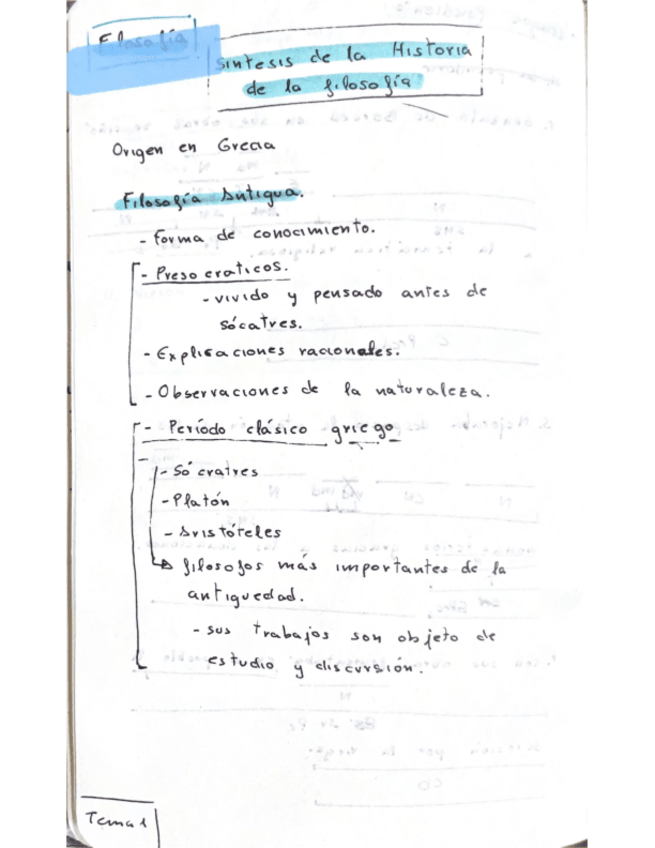 Filosofía
síntesis de la Historia
de la filosofía
Origen en Grecia
Filosofía Antigua.
- Forma de conocimiento.
- Presocraticos.
- vivido y pensado antes de
sócatres.
- Explicaciones racionales.
- Observaciones de la naturaleza.
- Período clásico griego
- Sócratres
- Platón
- Aristóteles
↳ filosofos más importantes de la
antiguedad.
- sus trabajos son objeto de
estudio y discursión.
Tema 1